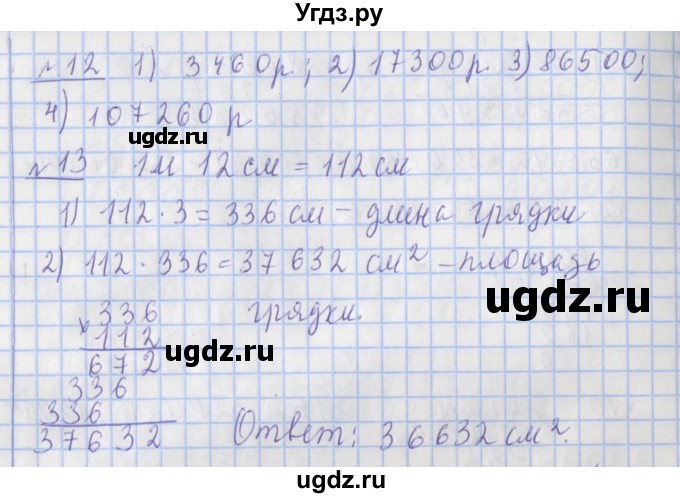 Угдз.ру
№12 1) 3460р.; 2) 17300р. 3) 86500;
4) 107260 р
ugdz.ru
№13 1м 12 см = 112 см
1) 112 · 3 = 336 см – длина грядки
2) 112 · 336 = 37 632 см² – площадь
ugdz.ru
× 336 грядки.
112
ugdz.ru
672
336
336
37632 Ответ: 36632 см².
ugdz.ru
Угдз.ру